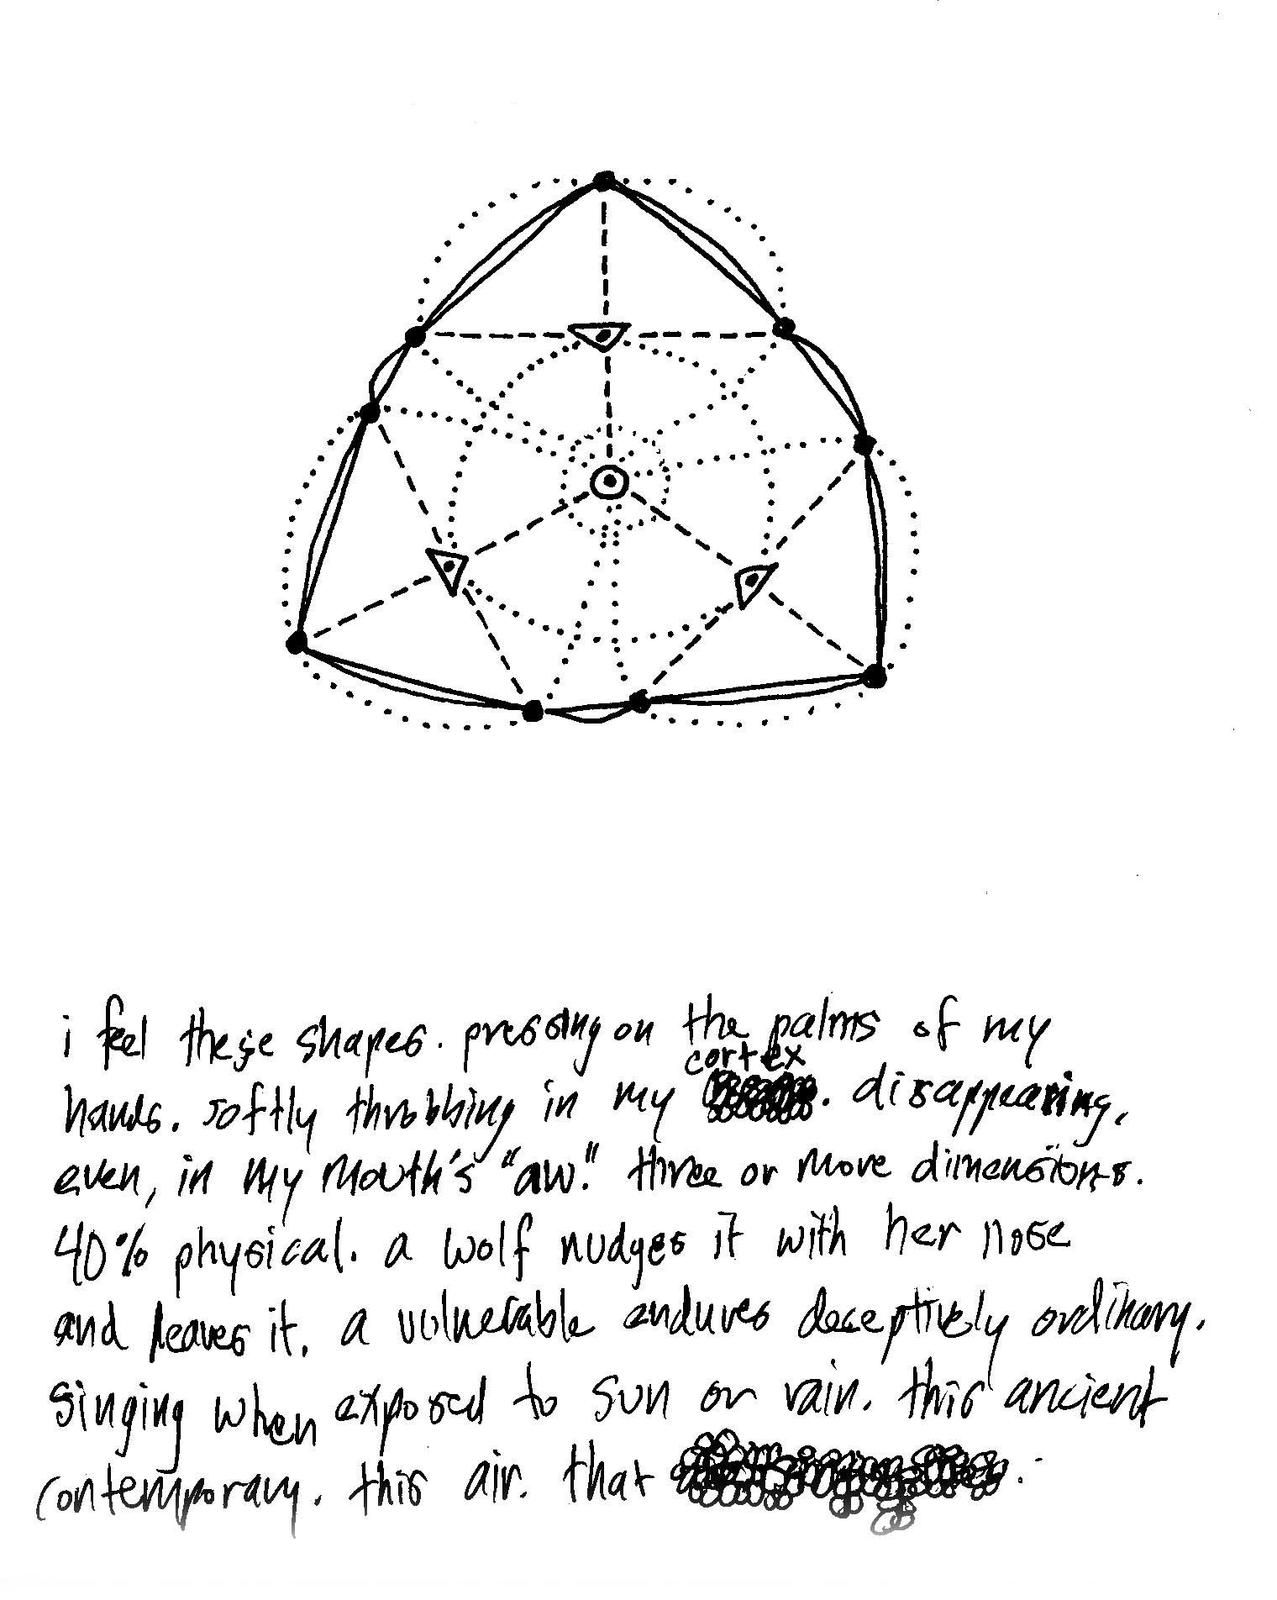 i feel these shapes. pressing on the palms of my
cortex
hands. softly throbbing in my . disappearing,
even, in my mouth's "aw." three or more dimensions.
40% physical. a wolf nudges it with her nose
and leaves it. a vulnerable endures deceptively ordinary.
singing when exposed to sun or rain. this ancient
contemporary. this air. that .